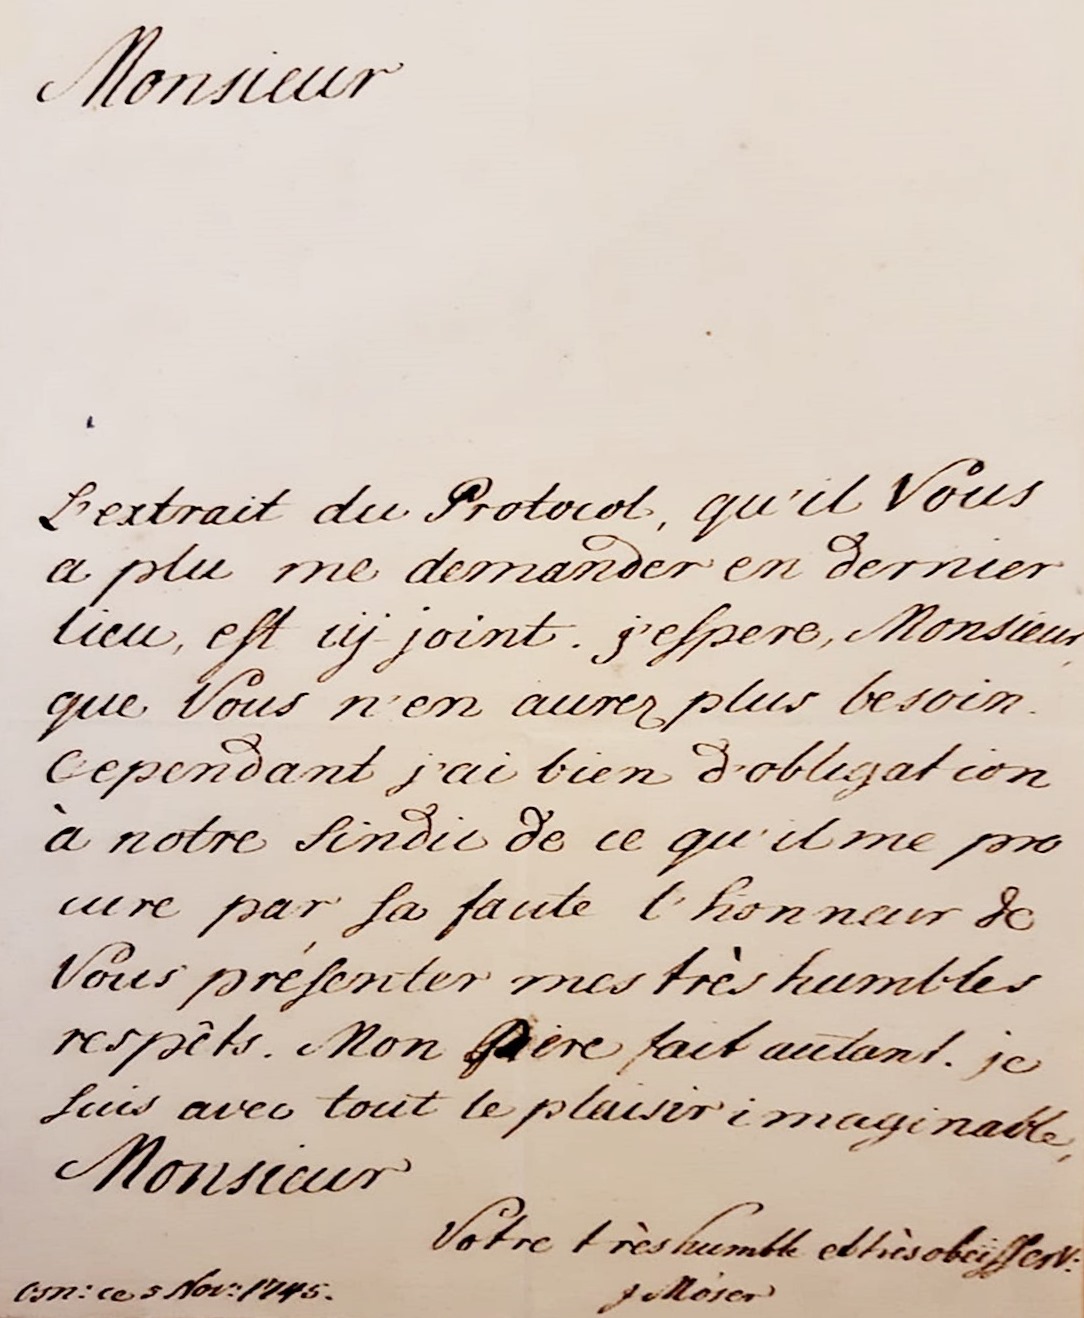 Monsieur
L'extrait du Protocol, qu'il Vous
a plu me demander en dernier
lieu, est icÿ joint. j'espere, Monsieur,
que Vous n'en aurez plus besoin.
Cependant j'ai bien d'obligation
à notre Sindic de ce qu'il me pro
cure par sa faute l'honneur de
Vous présenter mes très humbles
respêts. Mon Pière fait autant. je
suis avec tout le plaisir imaginable,
Monsieur
Votre très humble et très obeïss serv:
J Möser
Osn: ce 5 Nov: 1745.